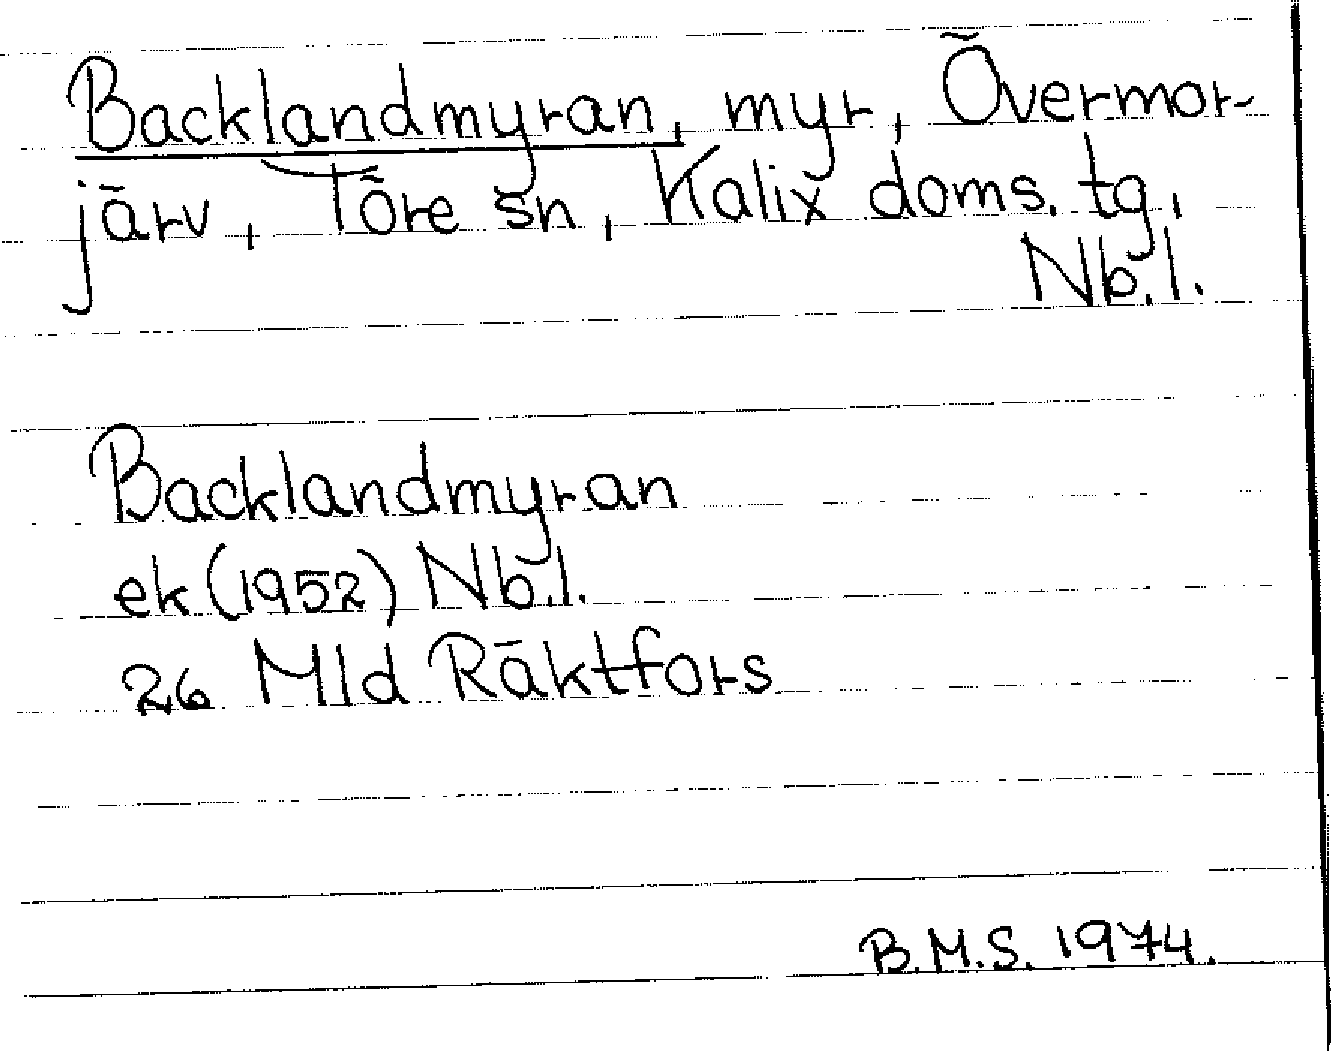 Backlandmyran, myr, Övermor-
järv, Töre sn, Kalix doms. tg,
Nb.l.
Backlandmyran
ek (1952) Nb.l.
26 Mld Räktfors
B.M.S. 1974.